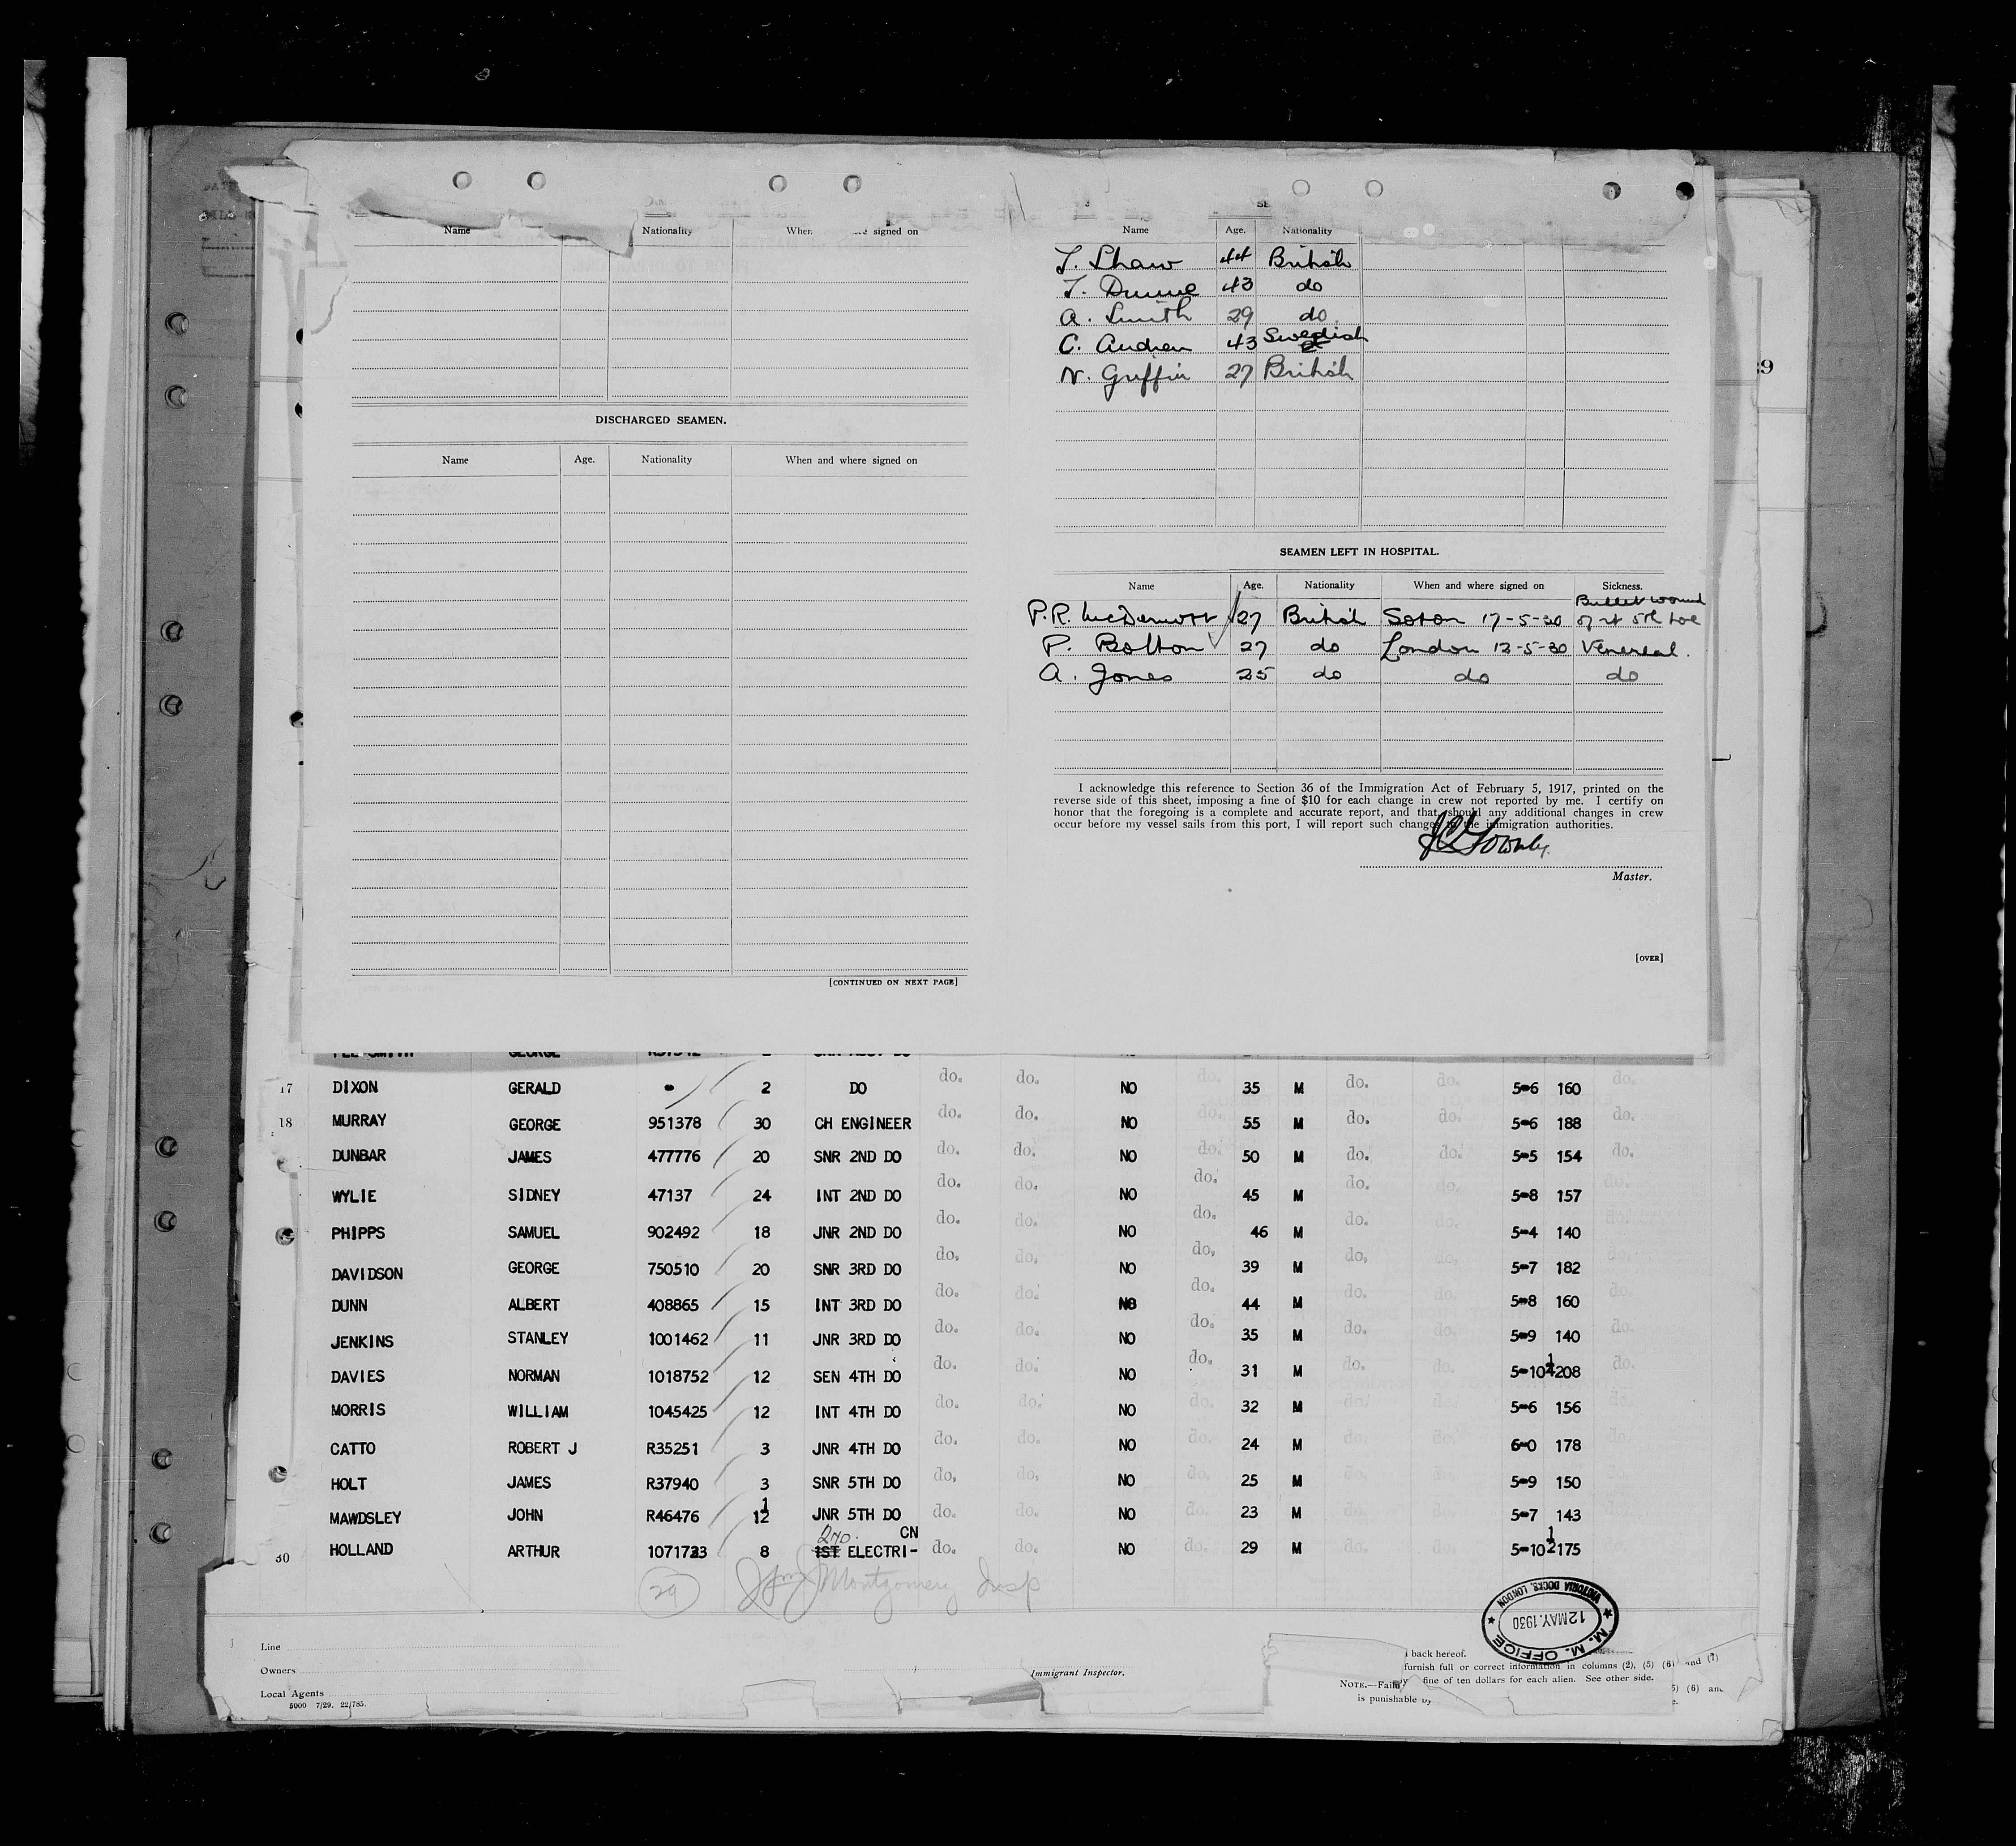 Name Nationality When signed on
DISCHARGED SEAMEN.
Name Age. Nationality When and where signed on
[CONTINUED ON NEXT PAGE]
Name Age. Nationality
J. Shaw 44 British
J. Dunne 43 do
A. Smith 29 do
C. Andren 43 Swedish
N. Griffin 27 British
SEAMEN LEFT IN HOSPITAL.
Name Age. Nationality When and where signed on Sickness.
P.R. McDermott 27 British Soton 17-5-30 Bullet wound of rt 5th toe
P. Bolton 27 do London 12-5-30 Venereal.
A. Jones 25 do do do
I acknowledge this reference to Section 36 of the Immigration Act of February 5, 1917, printed on the
reverse side of this sheet, imposing a fine of $10 for each change in crew not reported by me. I certify on
honor that the foregoing is a complete and accurate report, and that should any additional changes in crew
occur before my vessel sails from this port, I will report such changes to the immigration authorities.
Master.
[OVER]
17 DIXON GERALD - 2 DO do. do. NO do. 35 M do. do. 5-6 160 do.
18 MURRAY GEORGE 951378 30 CH ENGINEER do. do. NO do. 55 M do. do. 5-6 188 do.
DUNBAR JAMES 477776 20 SNR 2ND DO do. do. NO do. 50 M do. do. 5-5 154 do.
WYLIE SIDNEY 47137 24 INT 2ND DO do. do. NO do. 45 M do. do. 5-8 157 do.
PHIPPS SAMUEL 902492 18 JNR 2ND DO do. do. NO do. 46 M do. do. 5-4 140 do.
DAVIDSON GEORGE 750510 20 SNR 3RD DO do. do. NO do. 39 M do. do. 5-7 182 do.
DUNN ALBERT 408865 15 INT 3RD DO do. do. NO do. 44 M do. do. 5-8 160 do.
JENKINS STANLEY 1001462 11 JNR 3RD DO do. do. NO do. 35 M do. do. 5-9 140 do.
DAVIES NORMAN 1018752 12 SEN 4TH DO do. do. NO do. 31 M do. do. 5-10½ 208 do.
MORRIS WILLIAM 1045425 12 INT 4TH DO do. do. NO do. 32 M do. do. 5-6 156 do.
CATTO ROBERT J R35251 3 JNR 4TH DO do. do. NO do. 24 M do. do. 6-0 178 do.
HOLT JAMES R37940 3 SNR 5TH DO do. do. NO do. 25 M do. do. 5-9 150 do.
MAWDSLEY JOHN R46476 1/12 JNR 5TH DO do. do. NO do. 23 M do. do. 5-7 143 do.
30 HOLLAND ARTHUR 1071723 8 1ST 2ND ELECTRI-CN do. do. NO do. 29 M do. do. 5-10½ 175 do.
29 Montgomery Insp
M. M. OFFICE
12 MAY. 1930
VICTORIA DOCKS, LONDON
Line
Owners
Local Agents
5000 7/29. 22/785.
Immigrant Inspector.
back hereof.
furnish full or correct information in columns (2), (5) (6) and (7)
NOTE.—Failu fine of ten dollars for each alien. See other side.
is punishable by